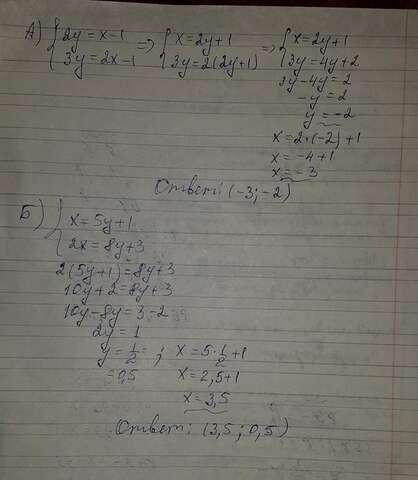 А) { 2y = x-1 => { x = 2y+1 => { x = 2y+1
3y = 2x-1 3y = 2(2y+1) 3y = 4y+2
3y-4y = 2
-y = 2
y = -2
x = 2·(-2)+1
x = -4+1
x = -3
Ответ: (-3; -2)
Б) { x = 5y+1
2x = 8y+3
2(5y+1) = 8y+3
10y+2 = 8y+3
10y-8y = 3-2
2y = 1
y = 1/2 = ; x = 5·1/2+1
= 0,5 x = 2,5+1
x = 3,5
Ответ: (3,5; 0,5)